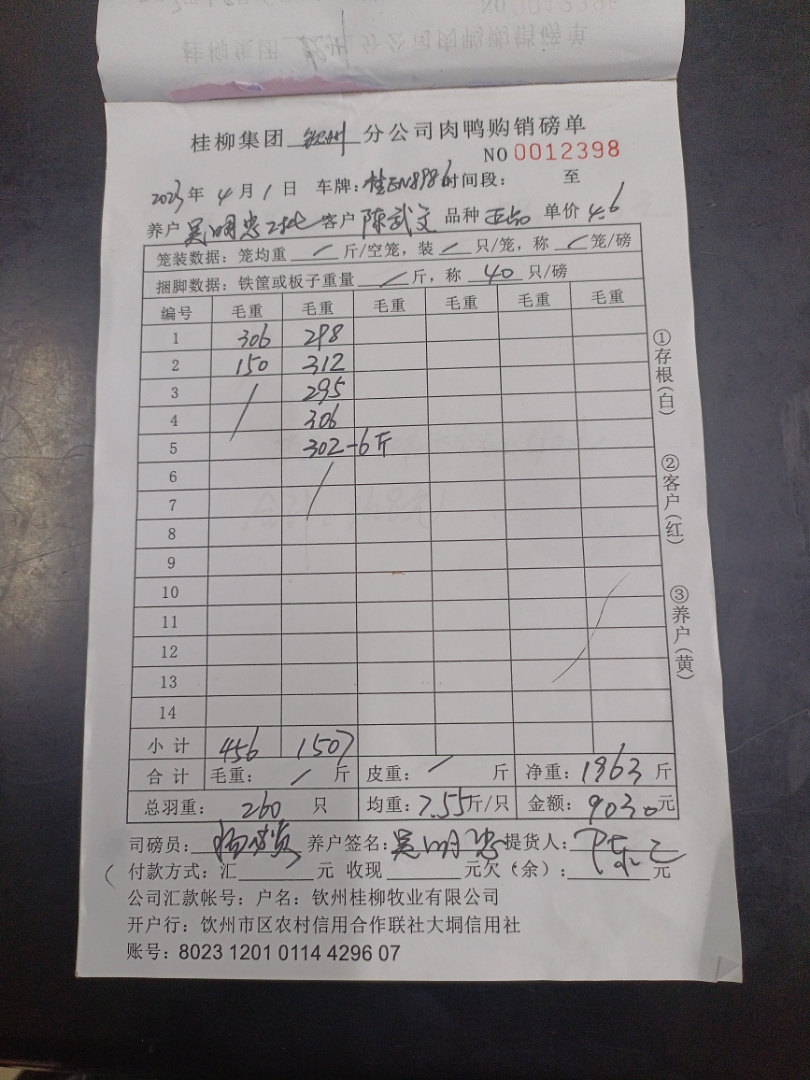 桂柳集团 钦州 分公司肉鸭购销磅单
NO 0012398
2023年 4月 1日 车牌:桂EN8986 时间段: 至
养户 吴明忠2批 客户 陈武文 品种 正品 单价 4.6
笼装数据:笼均重 / 斤/空笼,装 / 只/笼,称 / 笼/磅
捆脚数据:铁筐或板子重量 / 斤,称 40 只/磅
编号 毛重 毛重 毛重 毛重 毛重 毛重
1 306 298
2 150 312
3 / 295
4 306
5 302-6斤
6 /
7
8
9
10
11
12
13
14
小计 456 1507
合计 毛重: / 斤 皮重: / 斤 净重:1963 斤
总羽重: 260 只 均重:7.55斤/只 金额:9030元
司磅员: 养户签名:吴明忠 提货人:
付款方式:汇 元 收现 元欠(余): 元
公司汇款帐号:户名:钦州桂柳牧业有限公司
开户行:饮州市区农村信用合作联社大垌信用社
账号:8023 1201 0114 4296 07
①存根(白)
②客户(红)
③养户(黄)